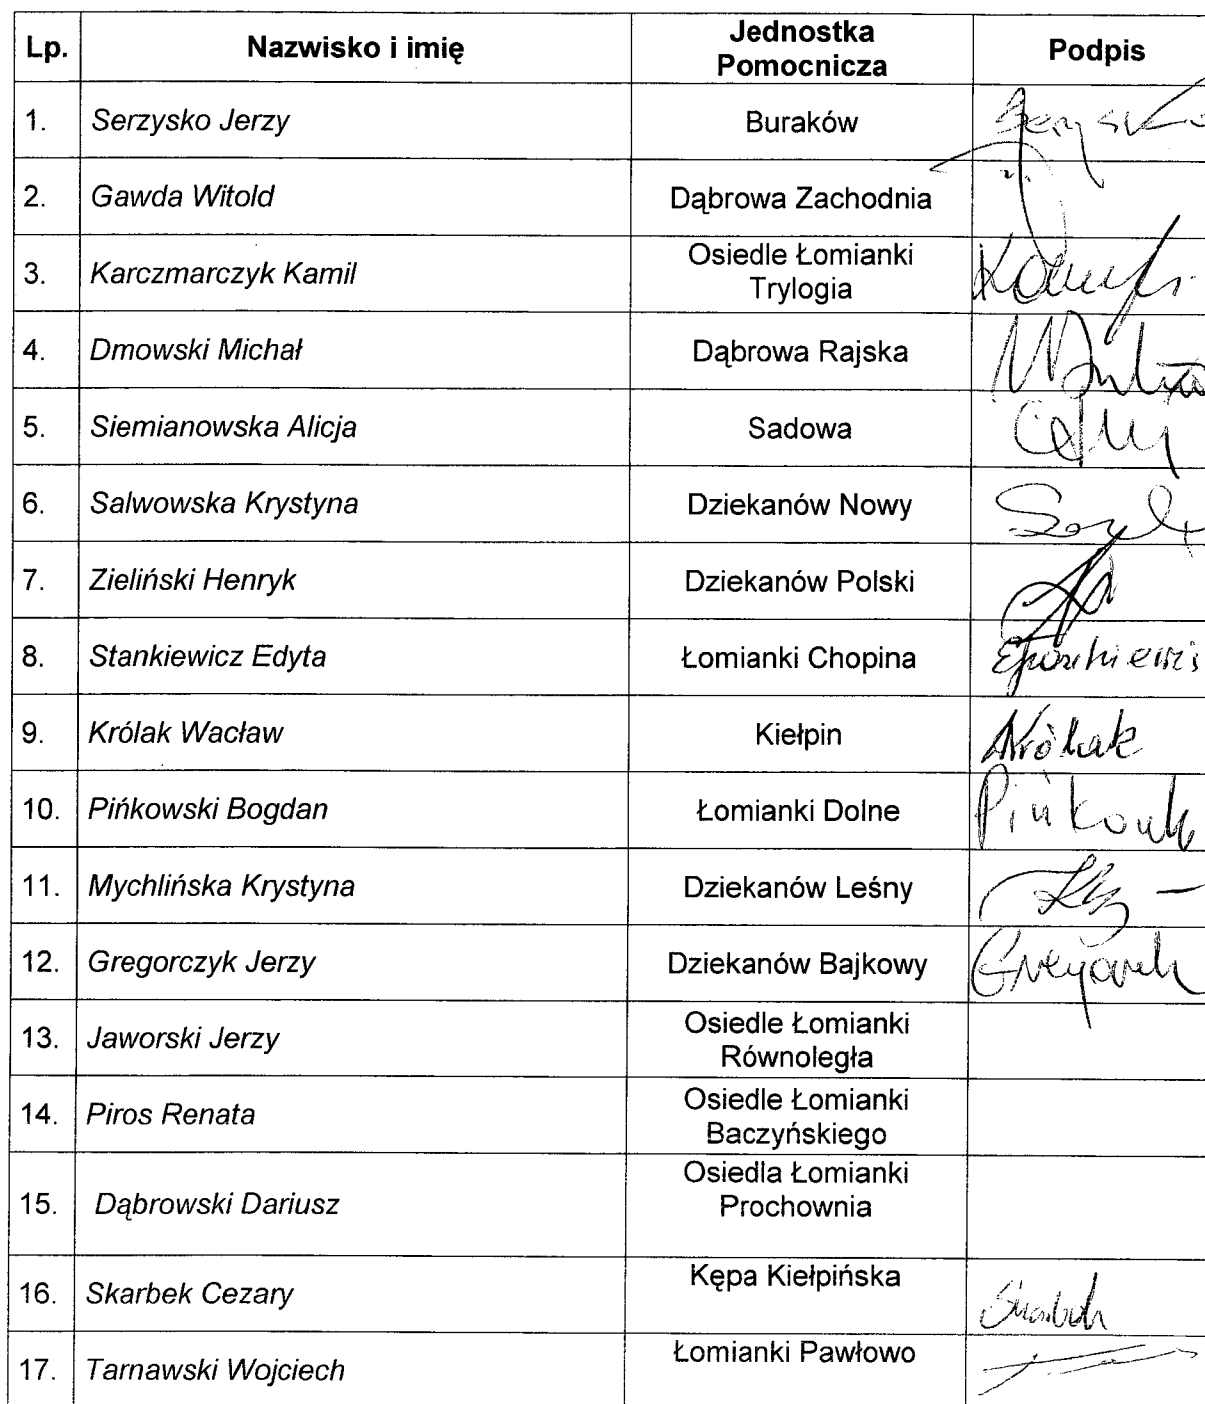 Lp. Nazwisko i imię Jednostka Pomocnicza Podpis
1. Serzysko Jerzy Buraków
2. Gawda Witold Dąbrowa Zachodnia
3. Karczmarczyk Kamil Osiedle Łomianki Trylogia
4. Dmowski Michał Dąbrowa Rajska
5. Siemianowska Alicja Sadowa
6. Salwowska Krystyna Dziekanów Nowy
7. Zieliński Henryk Dziekanów Polski
8. Stankiewicz Edyta Łomianki Chopina
9. Królak Wacław Kiełpin Królak
10. Pińkowski Bogdan Łomianki Dolne
11. Mychlińska Krystyna Dziekanów Leśny
12. Gregorczyk Jerzy Dziekanów Bajkowy
13. Jaworski Jerzy Osiedle Łomianki Równoległa
14. Piros Renata Osiedle Łomianki Baczyńskiego
15. Dąbrowski Dariusz Osiedla Łomianki Prochownia
16. Skarbek Cezary Kępa Kiełpińska
17. Tarnawski Wojciech Łomianki Pawłowo